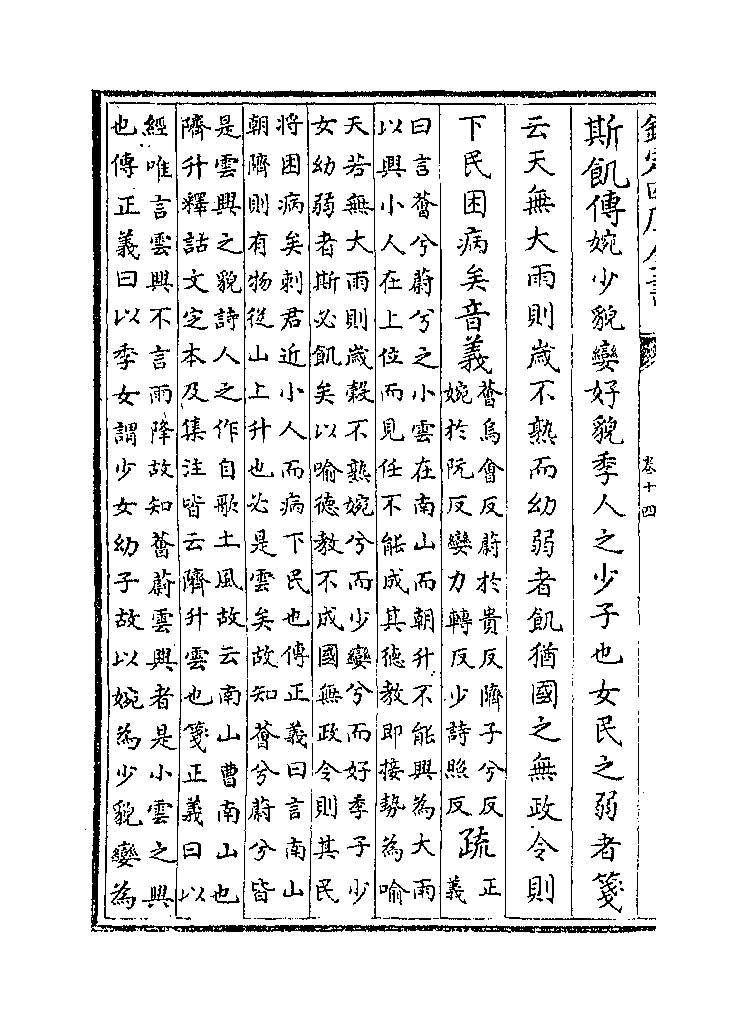 欽定四庫全書
卷十四
斯飢傳婉少貌孌好貌季人之少子也女民之弱者箋
云天無大雨則歲不熟而幼弱者飢猶國之無政令則
下民困病矣音義
薈烏會反蔚於貴反隮子兮反
婉於阮反孌力轉反少詩照反
疏
正
義
曰言薈兮蔚兮之小雲在南山而朝升不能興為大雨
以興小人在上位而見任不能成其德教即接勢為喻
天若無大雨則歲穀不熟婉兮而少孌兮而好季子少
女幼弱者斯必飢矣以喻德教不成國無政令則其民
將困病矣刺君近小人而病下民也傳正義曰言南山
朝隮則有物從山上升也必是雲矣故知薈兮蔚兮皆
是雲興之貌詩人之作自歌土風故云南山曹南山也
隮升釋詁文定本及集注皆云隮升雲也箋正義曰以
經唯言雲興不言雨降故知薈蔚雲興者是小雲之興
也傳正義曰以季女謂少女幼子故以婉為少貌孌為